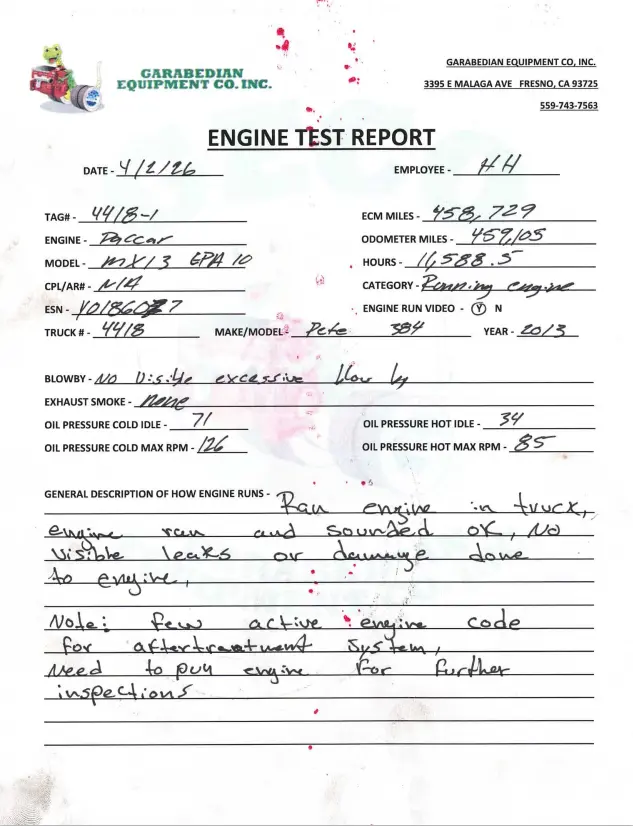 GARABEDIAN
EQUIPMENT CO. INC.
GARABEDIAN EQUIPMENT CO, INC.
3395 E MALAGA AVE FRESNO, CA 93725
559-743-7563
ENGINE TEST REPORT
DATE - 4/2/26 EMPLOYEE - HH
TAG# - 4418-1 ECM MILES - 458,729
ENGINE - Paccar ODOMETER MILES - 459,105
MODEL - MX13 EPA 10 HOURS - 11,588.5
CPL/AR# - N/A CATEGORY - Running engine
ESN - ENGINE RUN VIDEO - Y N
TRUCK # - 4418 MAKE/MODEL - Pete 384 YEAR - 2013
BLOWBY - NO Visible excessive blow by
EXHAUST SMOKE - none
OIL PRESSURE COLD IDLE - 71 OIL PRESSURE HOT IDLE - 34
OIL PRESSURE COLD MAX RPM - 126 OIL PRESSURE HOT MAX RPM - 85
GENERAL DESCRIPTION OF HOW ENGINE RUNS - Ran engine in truck,
engine ran and sounded OK, No
Visible leaks or damage done
to engine,
Note: few active engine code
for aftertreatment system,
Need to pull engine for further
inspections